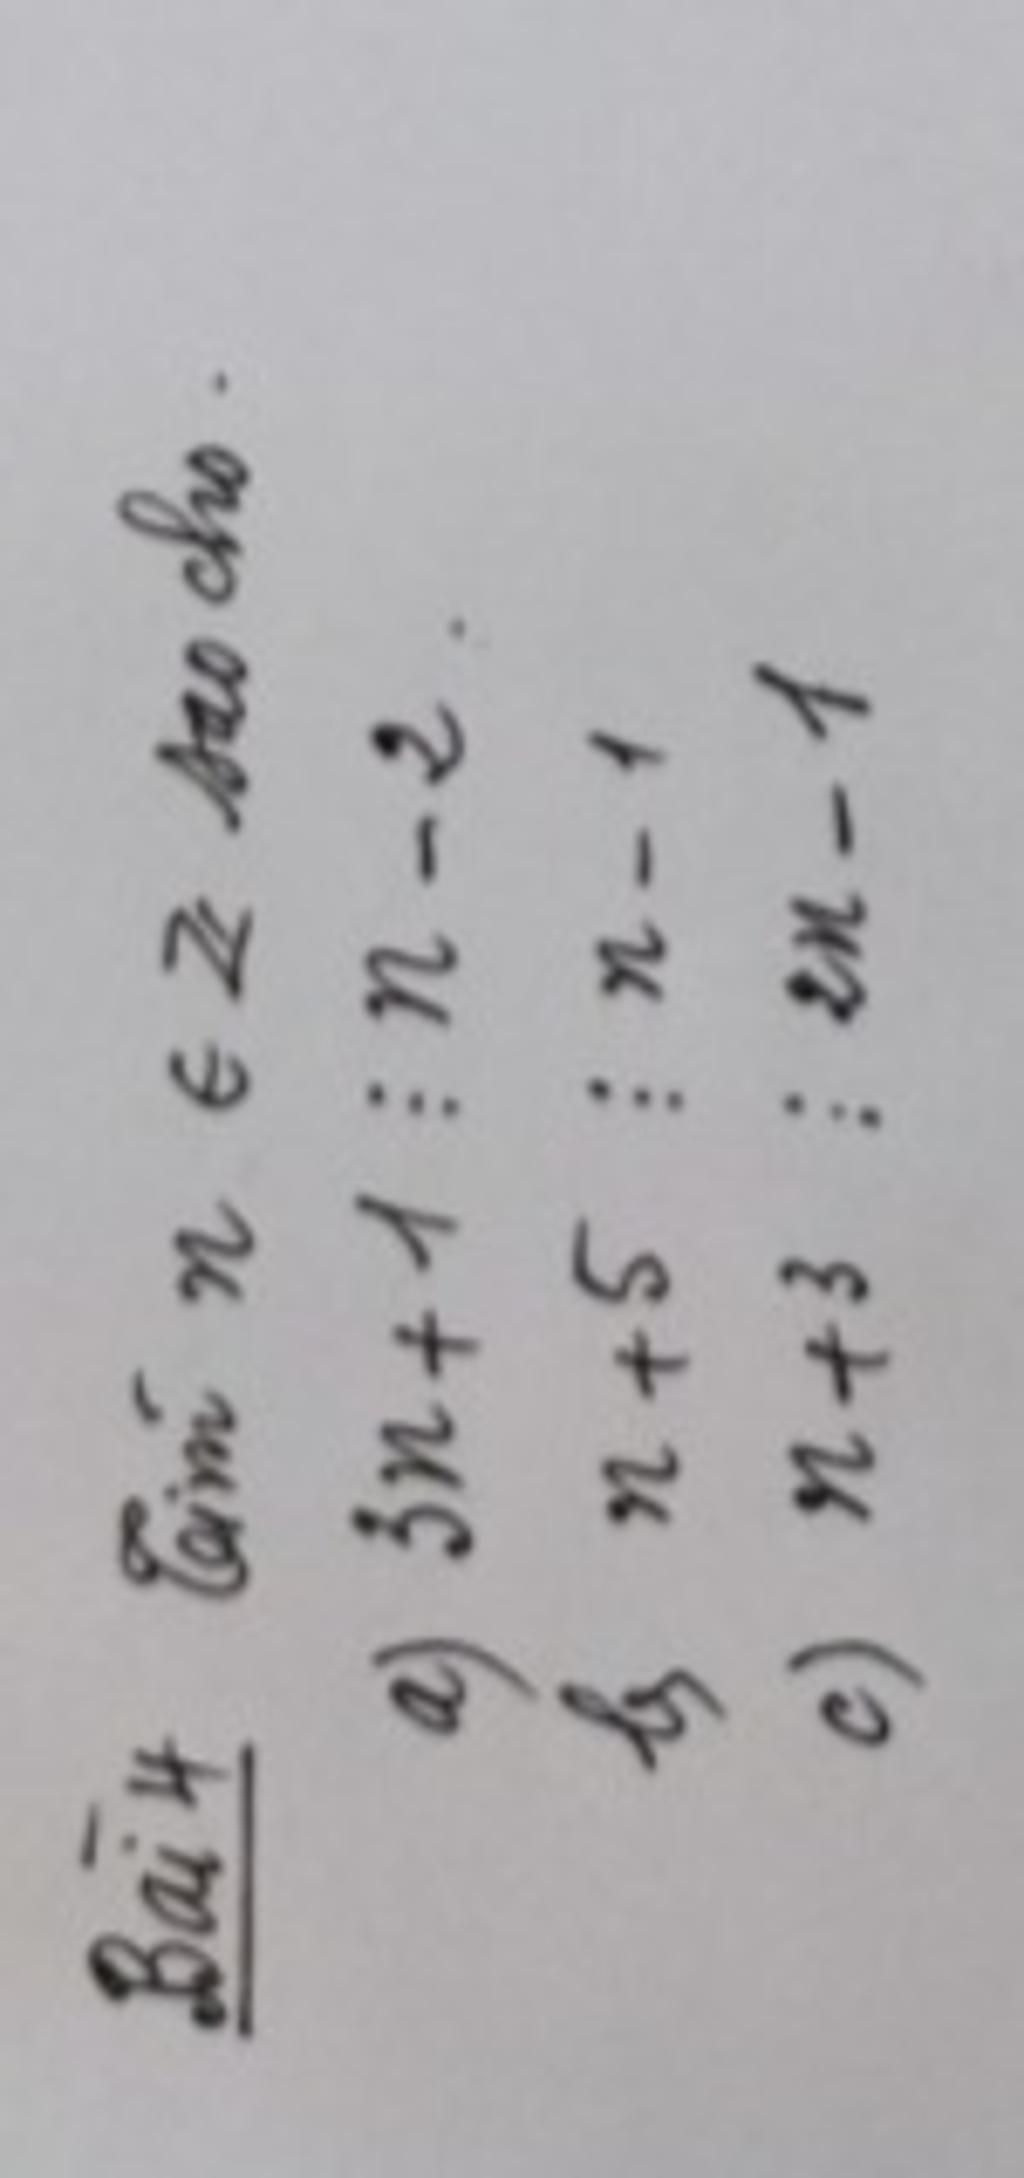 Bài 4 Tìm n ∈ ℤ sao cho.
a) 3n + 1 ⋮ n - 2.
b) n + 5 ⋮ n - 1
c) n + 3 ⋮ 2n - 1